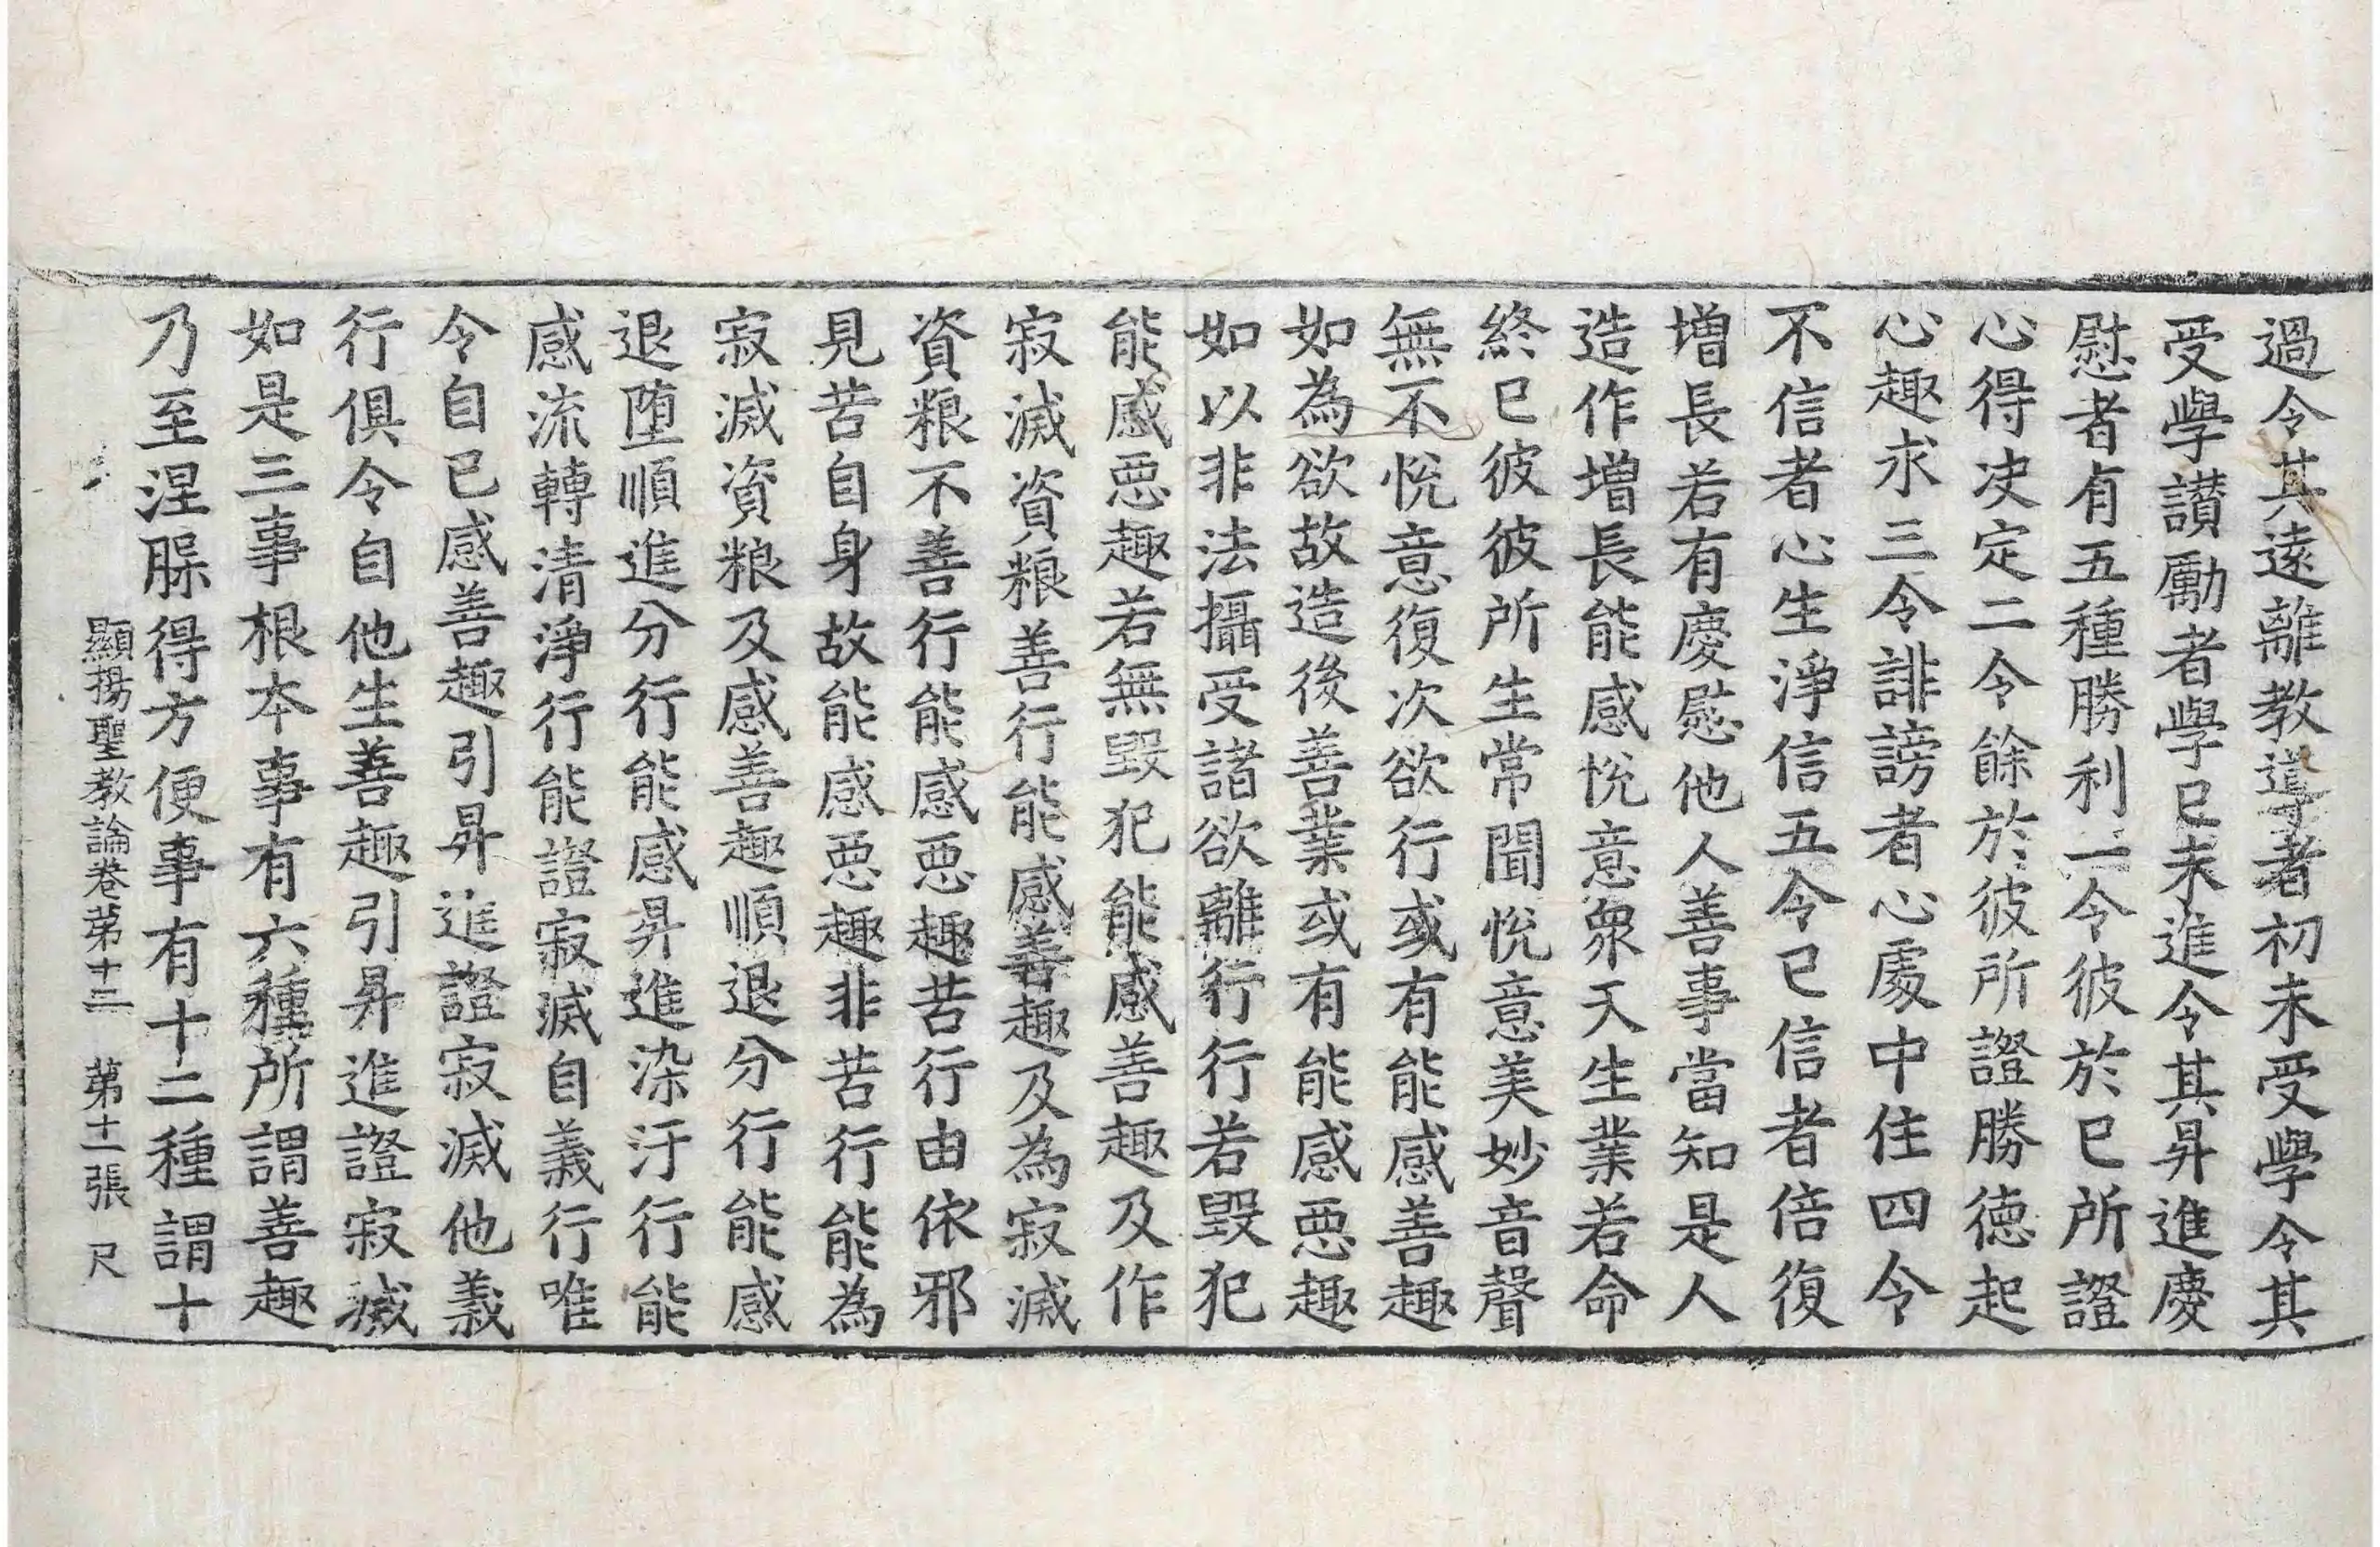 過令其遠離教導者初未受學令其
受學讃勵者學已未進令其昇進慶
慰者有五種勝利一令彼於已所證
心得决定二令餘於彼所證勝徳起
心趣求三令誹謗者心處中住四令
不信者心生淨信五令已信者倍復
增長若有慶慰他人善事當知是人
造作增長能感悅意衆天生業若命
終已彼彼所生常聞悅意美妙音聲
無不悅意復次欲行或有能感善趣
如為欲故造後善業或有能感惡趣
如以非法攝受諸欲離行行若毀犯
能感惡趣若無毀犯能感善趣及作
寂滅資粮善行能感善趣及為寂滅
資粮不善行能感惡趣苦行由依邪
見苦自身故能感惡趣非苦行能為
寂滅資粮及感善趣順退分行能感
退堕順進分行能感昇進染汙行能
感流轉清淨行能證寂滅自義行唯
令自已感善趣引昇進證寂滅他義
行俱令自他生善趣引昇進證寂滅
如是三事根本事有六種所謂善趣
乃至涅槃得方便事有十二種謂十
顯揚聖教論卷第十三　第十一張　尺